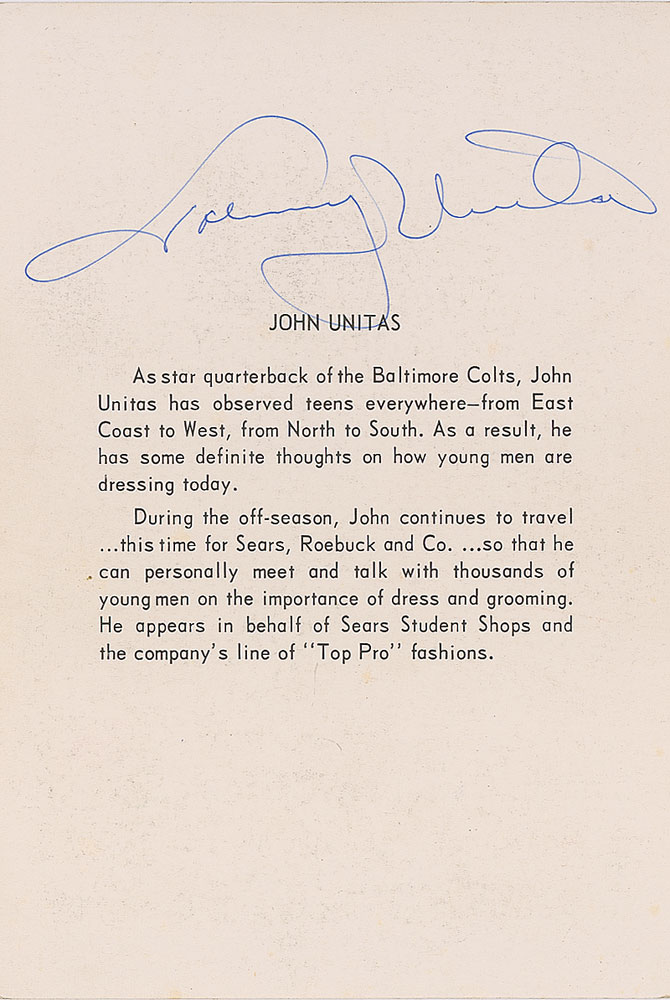 Johnny Unitas
JOHN UNITAS
As star quarterback of the Baltimore Colts, John
Unitas has observed teens everywhere—from East
Coast to West, from North to South. As a result, he
has some definite thoughts on how young men are
dressing today.
During the off-season, John continues to travel
...this time for Sears, Roebuck and Co. ...so that he
can personally meet and talk with thousands of
young men on the importance of dress and grooming.
He appears in behalf of Sears Student Shops and
the company's line of "Top Pro" fashions.